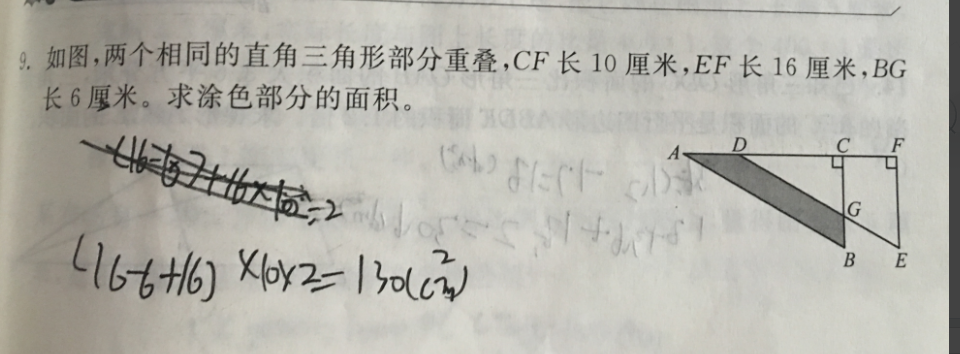 9. 如图,两个相同的直角三角形部分重叠,CF 长 10 厘米,EF 长 16 厘米,BG
长 6 厘米。求涂色部分的面积。
A D C F
(16-6+16)×10×2=130(cm²)
G
B E